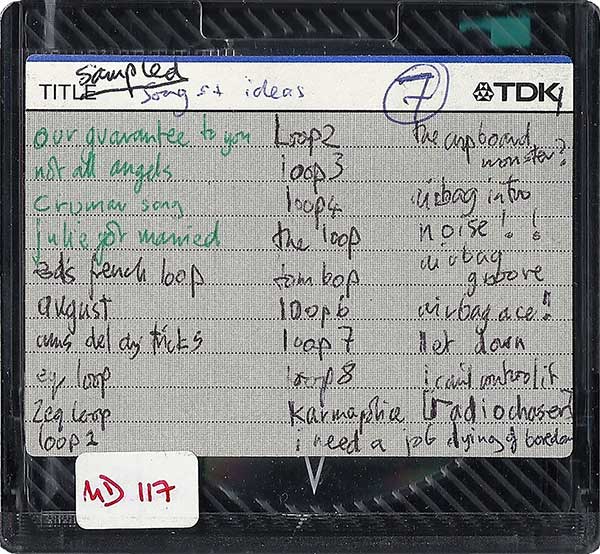 TITLE sampled
song st ideas
7
TDK
our guarantee to you
not all angels
song
julie got married
ed's french loop
august
ams del dy tricks
eq loop
2eq loop
loop 2
Loop2
loop3
loop4
the loop
tom bop
loop6
loop7
loop8
karmapolice [radiochaser]
i need a job dying of boredom
the cupboard
monster?
airbag intro
noise!!
airbag
groove
airbag ace!!
let down
i can't control it
MD 117